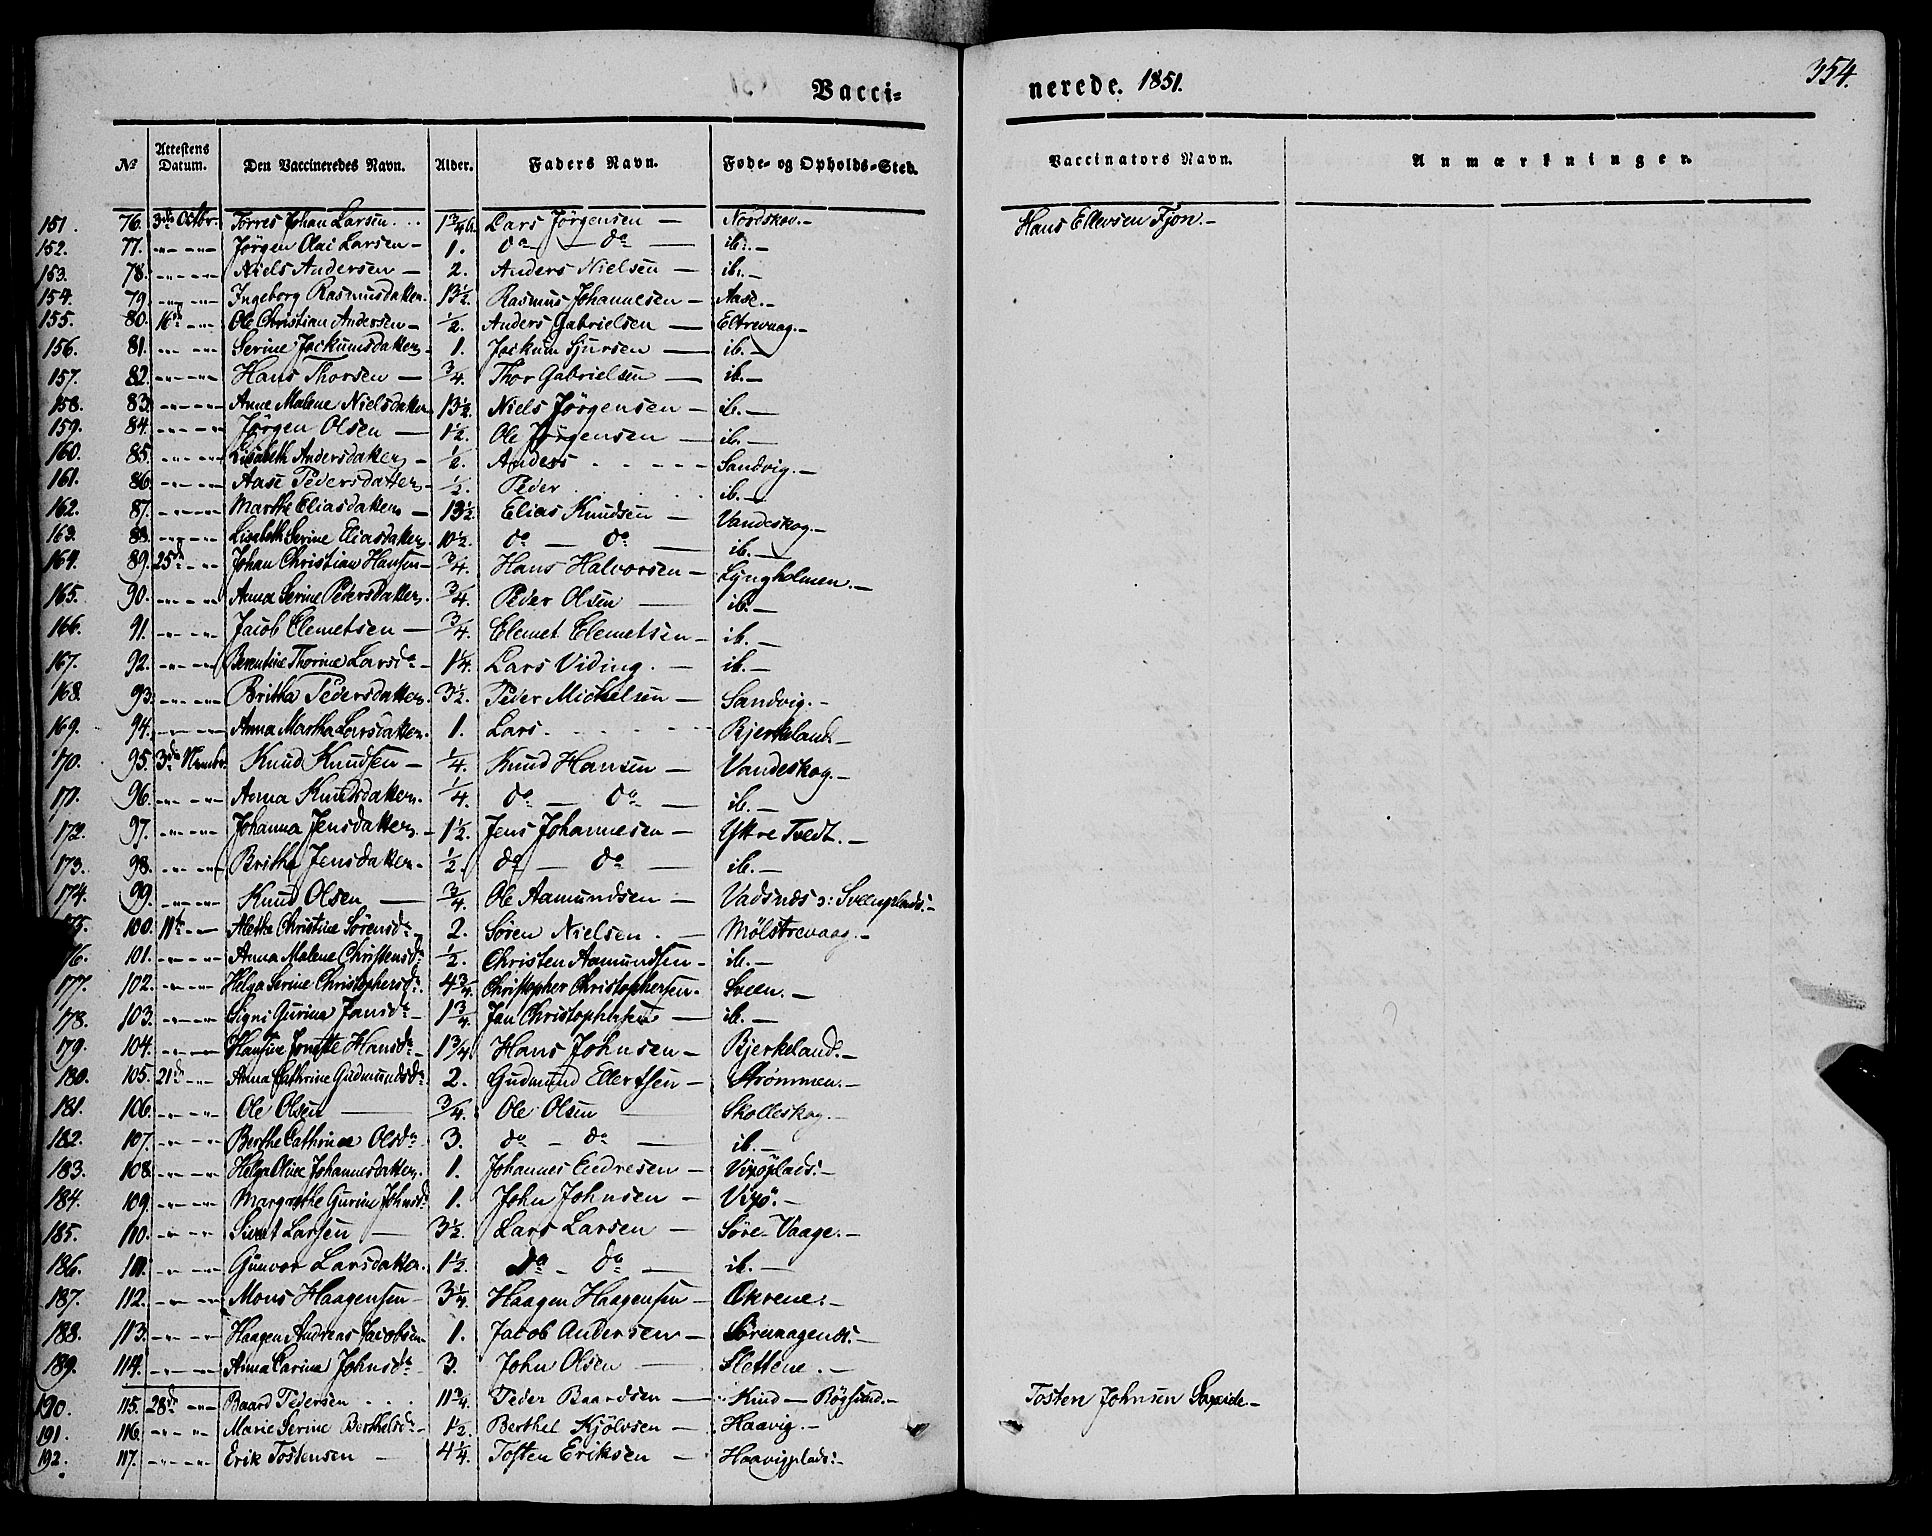 Vacci-
nerede. 1851.
354.
No Attestens Datum. Den Vaccineredes Navn. Alder. Faders Navn. Føde- og Opholds-Sted. Vaccinators Navn. Anmærkninger.
151. 76. 3die Octbr. Torres Johan Larsen. 1 3/4 Lars Jörgensen — Nordskov.— Hans Ellevsen Fjon.—
152. 77. „ „ Jörgen Olai Larsen — 1. do — do — ib.—
153. 78. „ „ Niels Andersen — 2. Anders Nielsen — ib.—
154. 79. „ „ Ingeborg Rasmusdatter. 13 1/2. Rasmus Johannesen — Aase.—
155. 80. 16de „ Ole Christian Andersen — 1/2. Anders Gabrielsen — Eltrevaag.—
156. 81. „ „ Serine Jockumsdatter — 1. Jockum Sjursen — ib.—
157. 82. „ „ Hans Thorsen — 3/4. Thor Gabrielsen — ib.—
158. 83. „ „ Anne Malene Nielsdatter 13 1/2. Niels Jörgensen — ib.—
159. 84. „ „ Jörgen Olsen — 1 1/2. Ole Jörgensen — ib.—
160. 85. „ „ Lisabeth Andersdatter — 1/2. Anders Sandvig.—
161. 86. „ „ Aase Pedersdatter — 1/2. Peder ib.—
162. 87. „ „ Marthe Eliasdatter — 13 1/2. Elias Knudsen — Vandeskog.—
163. 88. „ „ Lisabeth Serine Eliasdatter. 10 1/2. do — do — ib.—
164. 89. 25de „ Johan Christian Hansen — 3/4. Hans Halvorsen — Lyngholmen.—
165. 90. „ „ Anna Serine Pedersdatter. 3/4. Peder Olsen — ib.—
166. 91. „ „ Jacob Clemetsen — 3/4. Clemet Clemetsen — ib.—
167. 92. „ „ Berentine Thorine Larsdr — 1 1/4. Lars Viding. — ib.—
168. 93. „ „ Britha Pedersdatter. 3 1/2. Peder Michelsen — Sandvig.—
169. 94. „ „ Anna Martha Larsdatter. 1. Lars Bjerkeland.—
170. 95. 3die Novembr. Knud Knudsen — 1/4. Knud Hansen — Vandeskog.—
171. 96. „ „ Anna Knudsdatter. 1/4. do — do — ib.—
172. 97. „ „ Johanna Jensdatter. — 1 1/2. Jens Johannesen — Yttre Tvedt.—
173. 98. „ „ Britha Jensdatter. 1/2. do — do — ib.—
174. 99. „ „ Knud Olsen — 3/4. Ole Aamundsen — Vadsnæs ɔ: Sveensplads:—
175. 100. 11te „ Alethe Christine Sörensdr. 2. Sören Nielsen. — Mölstrevaag.—
176. 101. „ „ Anna Malene Christensdr. 1/2. Christen Aamundsen — ib.—
177. 102. „ „ Helga Serine Christophersdr. 4 3/4. Christopher Christophersen. Sveen.—
178. 103. „ „ Signi Gurina Jansdr — 1 3/4. Jan Christophersen — ib.—
179. 104. „ „ Hansine Hansdr. 1 3/4. Hans Johnsen — Bjerkeland.—
180. 105. 21de „ Anna Cathrine Gudmundsdr. 2. Gudmund Ellertsen — Strömmen.—
181. 106. „ „ Ole Olsen — 3/4. Ole Olsen Skolleskog.—
182. 107. „ „ Berthe Cathrine Olsdr. 3. do — do — ib.—
183. 108. „ „ Helga Oline Johannesdatter. 1. Johannes Endresen — Vixöplads:—
184. 109. „ „ Margrethe Gurine Johnsdr. 1. John Johnsen — Vixö.—
185. 110. „ „ Larsen — 3 1/2. Lars Larsen — Söre-Vaage.—
186. 111. „ „ Gunvor Larsdatter. 1 1/2. do — do — ib.—
187. 112. „ „ Mons Haagensen — 3 1/4. Haagen Haagensen — Økrene:—
188. 113. „ „ Haagen Andreas Jacobsen 1. Jacob Andersen — Sörevaagends:—
189. 114. „ „ Anna Carina Johnsdr. 3. John Olsen — Slettene.—
190. 115. 28de „ Baard Pedersen 11 3/4. Peder Baardsen — Kind — Bögsund.— Tosten Johnsen
191. 116. „ „ Marie Serine Berthelsdr — 1 1/2. Berthel Kjölvsen — Haavig.—
192. 117. „ „ Erik Tostensen — 4 1/4. Tosten Eriksen — Haavigplads:—